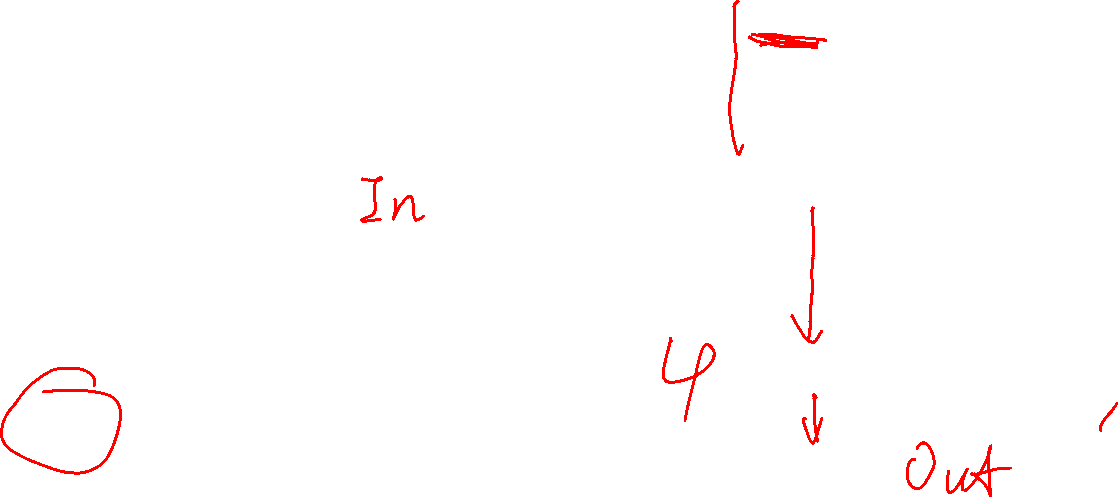 In
φ
Out